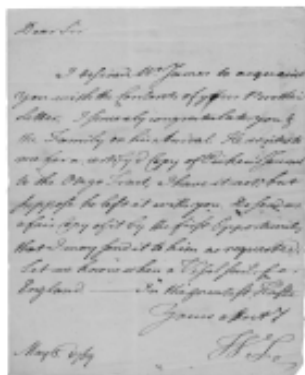 Dear Sir
I desired Mr James to acquaint
you with the Contents of your Brothers
Letter. I sincerely congratulate you &
the Family on his Arrival. He writes to
me for a Copy of
to the Otego Tract, I have it not, but
suppose he left it with you. Do send me
a fair Copy of it by the first Opportunity
that I may send it to him as requested.
Let me know when a Vessel sails for
England — In the greatest Haste
Yours
May 6. 1769